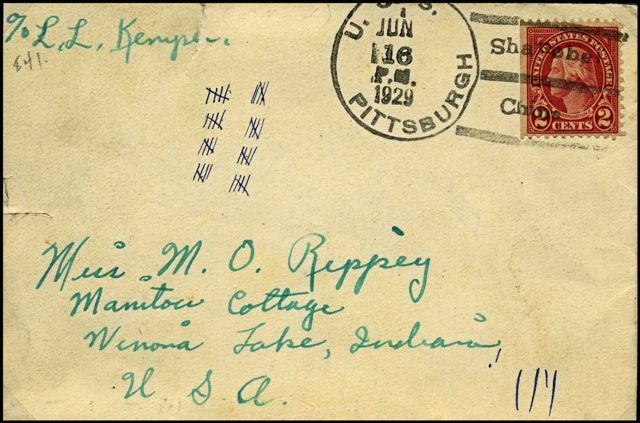 % L. L. Kemper.
841.
U. S. S.
JUN
16
P.M.
1929
PITTSBURGH
China
UNITED STATES POSTAGE
2 CENTS 2
Miss M. O. Rippey
Manitou Cottage
Winona Lake, Indiana,
U. S. A.